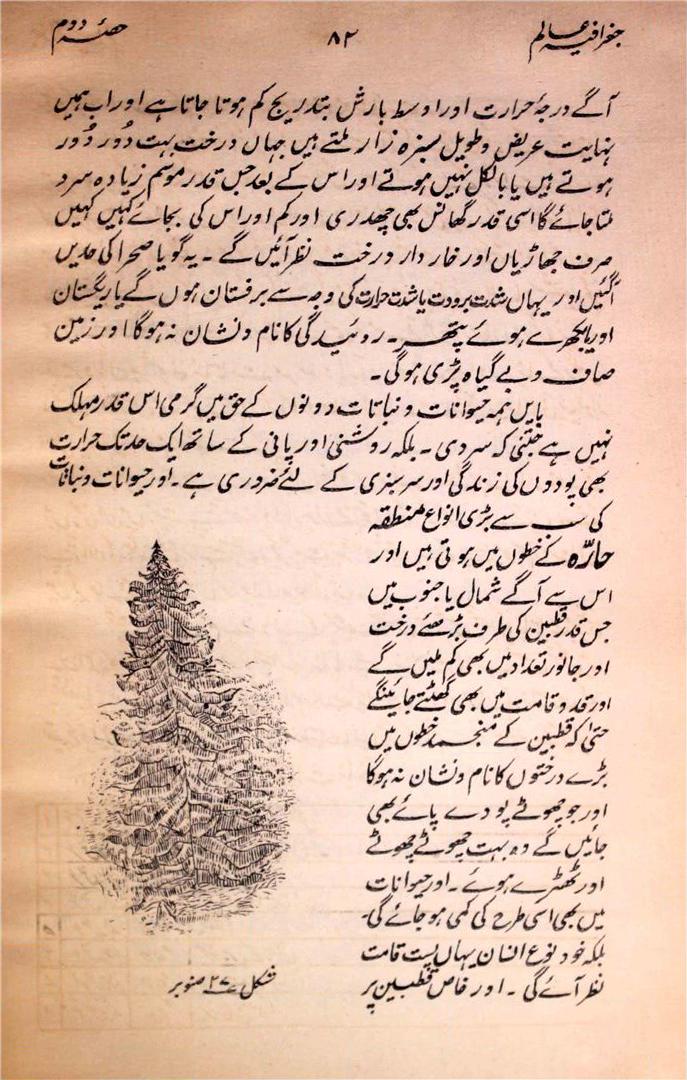 جغرافیہ عالم
۸۲
حصہ دوم
آگے درجۂ حرارت اور اوسط بارش بتدریج کم ہوتا جاتا ہے اور اب ہمیں
نہایت عریض و طویل سبزہ زار ملتے ہیں جہاں درخت بہت دُور دُور
ہوتے ہیں یا بالکل نہیں ہوتے اور اس کے بعد جس قدر موسم زیادہ سرد
ملتا جائے گا اسی قدر گھانس بھی چھدری اور کم اور اس کی بجائے کہیں کہیں
صرف جھاڑیاں اور خار دار درخت نظر آئیں گے ۔ یہ گویا صحرا کی حدیں
آگئیں اور یہاں شدت برودت یا شدت حرارت کی وجہ سے برفستان ہوں گے یا ریگستان
اور یا بکھرے ہوئے پتھر ۔ روئیدگی کا نام و نشان نہ ہوگا اور زمین
صاف و بے گیاہ پڑی ہوگی ۔
بایں ہمہ حیوانات و نباتات دونوں کے حق میں گرمی اس قدر مہلک
نہیں ہے جتنی کہ سردی ۔ بلکہ روشنی اور پانی کے ساتھ ایک حد تک حرارت
بھی پودوں کی زندگی اور سرسبزی کے لئے ضروری ہے ۔ اور حیوانات و نباتات
کی سب سے بڑی انواع منطقہ
حارّہ کے خطوں میں ہوتی ہیں اور
اس سے آگے شمال یا جنوب میں
جس قدر قطبین کی طرف بڑھئے درخت
اور جانور تعداد میں بھی کم ملیں گے
اور قد و قامت میں بھی گھٹتے جائینگے
حتیٰ کہ قطبین کے منجمد خطوں میں
بڑے درختوں کا نام و نشان نہ ہوگا
اور جو چھوٹے پودے پائے بھی
جائیں گے وہ بہت چھوٹے چھوٹے
اور ٹھٹرے ہوئے ۔ اور حیوانات
میں بھی اسی طرح کی کمی ہو جائے گی ۔
بلکہ خود نوع انسان یہاں پست قامت
نظر آئے گی ۔ اور خاص قطبین پر
شکل ۲۷ صنوبر